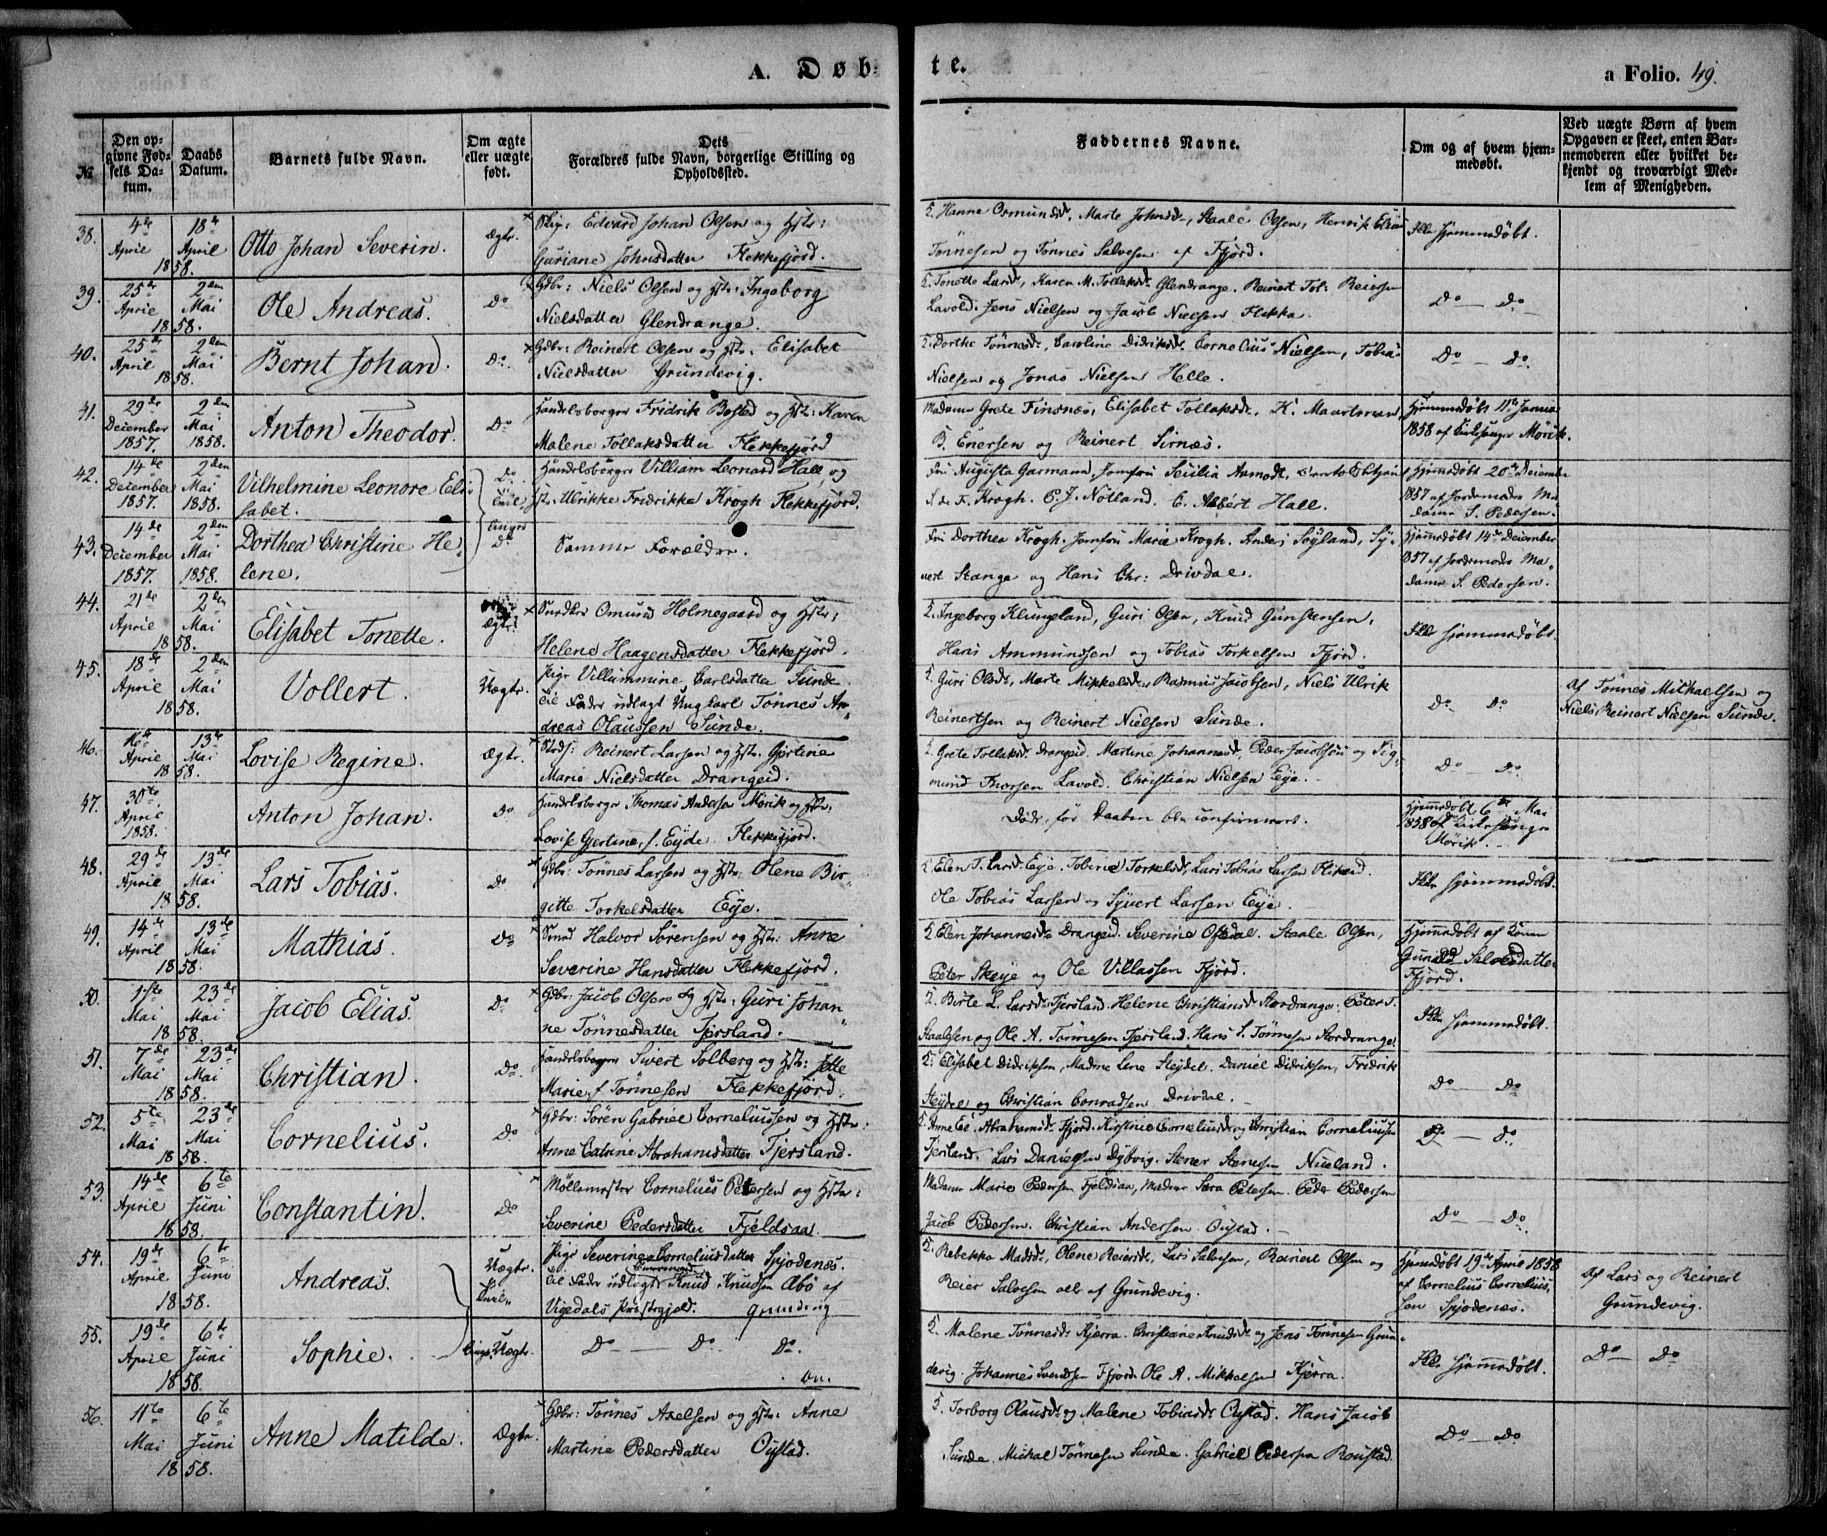 A. Døb-
te.
a Folio. 49.
№
Den op-
givne Fød-
sels Da-
tum.
Daabs
Datum.
Barnets fulde Navn.
Om ægte
eller uægte
født.
Dets
Forældres fulde Navn, borgerlige Stilling og
Opholdssted.
Faddernes Navne.
Om og af hvem hjem-
medøbt.
Ved uægte Børn af hvem
Opgaven er skeet, enten Bar-
nemoderen eller hvilket be-
kjendt og troværdigt Med-
lem af Menigheden.
38.
4de
April
18de
April
1858.
Otto Johan Severin.
Ægte.
Edvard Johan Olsen og Hstr:
Guriane Johnsdatter Flekkefjord.
Hanne Osmundsd., Marte Johnsd., Staale Olsen, Henrik Elias
Tønnesen og Tønnes Salvesen af Fjord.
Ikke hjemmedøbt.
39.
25de
April
2den
Mai
1858.
Ole Andreas.
Do
Gdbr: Niels Olsen og Hstr: Ingeborg
Nielsdatter Glendrange.
Tonette Larsd., Karen M. Tollaksd. Glendrange. Reinert Tob: Reiersen
Lavold. Jens Nielsen og Jacob Nielsen Flikka.
Do — Do
40.
25de
April
2den
Mai
1858.
Bernt Johan.
Do.
Gdbr: Reinert Olsen og Hstr. Elisabet
Nielsdatter Grundevig.
Dorthe Tønnesd., Caroline Didriksd. Cornelius Nielsen, Tobias
Nielsen og Jonas Nielsen Helle.
Do — Do
41.
29de
December
1857.
2den
Mai
1858.
Anton Theodor.
Do
Handelsborger Fridrik Bosted og Hstr: Karen
Malene Tollaksdatter Flekkefjord
Madame Grete Finsnes, Elisabet Tollaksd., K. Maartman
B. Enersen og Reinert Sirnæs.
Hjemmedøbt 11te Janua
1858 af Kirkesanger Mörik.
42.
14de
December
1857.
2den
Mai
1858.
Vilhelmine Leonore Eli-
sabet.
Do.
Handelsborger Villiam Leonard Hall og
Hstr. Ulrikke Fredrikke Krogh Flekkefjord.
Frii Augusta Garmann, Jomfru Secilia Aamodt,
S. de F. Krogh. P. J. Nötland. E. Albert Hall.
Hjemmedøbt 20de December
1857 af Jordemoder Ma-
dame S. Pedersen.
43.
14de
December
1857.
2den
Mai
1858.
Dorthea Christine He-
lene.
Do
Samme Forældre.
Dorthea Krogh. Jomfru Marie Krogh. Anders Søyland, Sy-
vert Stange og Hans Chr: Drivdal.
Hjemmedøbt 14de December
1857 af Jordemoder Ma-
dame S. Pedersen.
44.
21de
April
2den
Mai
1858.
Elisabet Tonette.
Ægte.
Snedker Omund Holmegaard og Hstr:
Helene Haagensdatter Flekkefjord.
Ingeborg Klungland, Guri Olsen, Knud Gunstensen,
Hans Ammundsen og Tobias Torkelsen Fjord.
Ikke hjemmedøbt.
45.
18de
April
2den
Mai
1858.
Vollert.
Uægte.
Pige Villummine Carlsdatter Sunde.
Til Fader udlagt Ungkarl Tønnes An-
dreas Olaussen Sunde.
Guri Olsd., Marte Mikkelsd., Rasmus Jacobsen, Niels Ulrik
Reinertsen og Reinert Nielsen Sunde.
Do — Do
Af Tønnes Michaelsen og
Niels Reinert Nielsen Sunde.
46.
16de
April
13de
Mai
1858.
Lovise Regine.
Ægte.
Reinert Larsen og Hstr. Gjertine
Marie Nielsdatter Drangeid.
Grete Tollaksd. Drangeid. Martine Johannesd., Peder Jacobsen og Sig-
mund Thorsen Lavold. Christian Nielsen Eye.
Do — Do.
47.
30te
April
1858.
Anton Johan.
Do
Handelsborger Thomas Andersen Mörik og Hstr.
Lovise Gjertine, f. Eyde Flekkefjord.
Døde før Daaben blev confirmeret.
Hjemmedøbt 6te Mai
1858 af Kirkesanger
Mörik.
48.
29de
April
13de
Mai
1858.
Lars Tobias.
Do
Gdbr: Tønnes Larsen og Hstr: Olene Bir-
gitte Torkelsdatter Eye.
Elen T. Larsd. Eye. Tobine Torkelsd., Lars Tobias Larsen
Ole Tobias Larsen og Syvert Larsen Eye.
Ikke hjemmedøbt.
49.
14de
April
13de
Mai
1858.
Mathias.
Do
Smed Halvor Sørensen og Hstr: Anne
Severine Hansdatter Flekkefjord.
Elen Johannesd. Drangeid. Severine Oftedal. Staale Olsen,
Peter Skeye og Ole Villassen Fjord.
Hjemmedøbt af Konen
Gunild Salvesdatter
Fjord.
50.
1ste
Mai
23de
Mai
1858.
Jacob Elias.
Do
Gdbr. Jacob Olsen og Hstr: Guri Johan-
ne Tönnesdatter Fjersland.
Birte L. Larsd. Fjersland. Helene Christiansd. Stordrange. Peter S.
Staalesen og Ole A. Tønnesen Fjersland. Hans S. Tønnesen Stordrange.
Ikke hjemmedøbt.
51.
7de
Mai
23de
Mai
1858.
Christian.
Do.
Handelsborger Sivert Solberg og Hstr: Jette
Marie, f. Tönnesen Flekkefjord.
Elisabet Didriksen, Madme Lene Stejdel. Daniel Didriksen, Fridrik
Stejdel og Christian Conradsen Drivdal.
Do — Do
52.
5te
Mai
23de
Mai
1858.
Cornelius.
Do
Gdbr: Sören Gabriel Corneliussen og Hstr:
Anne Catrine Abrahamsdatter Fjersland.
Anne Abrahamsd. Fjord. Kirstine Corneliusd. og Christian Corneliussen
Fjersland. Lars Danielsen Dybvig. Stener Stenersen Nueland.
Do — Do.
53.
14de
April
6te
Juni
1858.
Constantin.
Do
Møllemester Cornelius Petersen og Hstr:
Severine Pedersdatter Fjeldsaa.
Madame Marie Pedersen Fjeldsaa, Madame Sara Petersen. Peder Pedersen
Jacob Pedersen. Christian Andersen Oystad.
Do — Do
54.
19de
April
6te
Juni
1858.
Andreas.
Uægte.
Pige Severine Corneliusdatter Spjodenes.
Til Fader udlagt Knud Knudsen Æbø af
Vigedals Præstegjeld. Grundevig
Rebekka Madsd. Olene Reiersd. Lars Salvesen, Reinert Olsen og
Reier Salvesen alle af Grundevig.
Hjemmedøbt 19de April 1858
af Cornelius Cornelius-
sen Spjodenes.
Af Lars og Reinert
Grundevig.
55.
19de
April
6te
Juni
1858.
Sophie.
Uægte.
Do — Do Do.
Malene Tønnesd. Kjerra. Christiane Knudsd. og Jens Tønnesen Grun-
devig. Johannes Svendsen Fjord. Ole A. Mikkelsen Kjerra.
Ikke hjemmedøbt.
Do — Do
56.
11te
Mai
6te
Juni
1858.
Anne Matilde.
Ægte.
Gdbr: Tønnes Axelsen og Hstr: Anne
Martine Pedersdatter Oystad.
Torborg Olausd. og Malene Tobiasd. Oystad. Hans Jacob
Sunde. Mickal Tønnesen Sunde. Gabriel Pedersen Roustad.
Do — Do